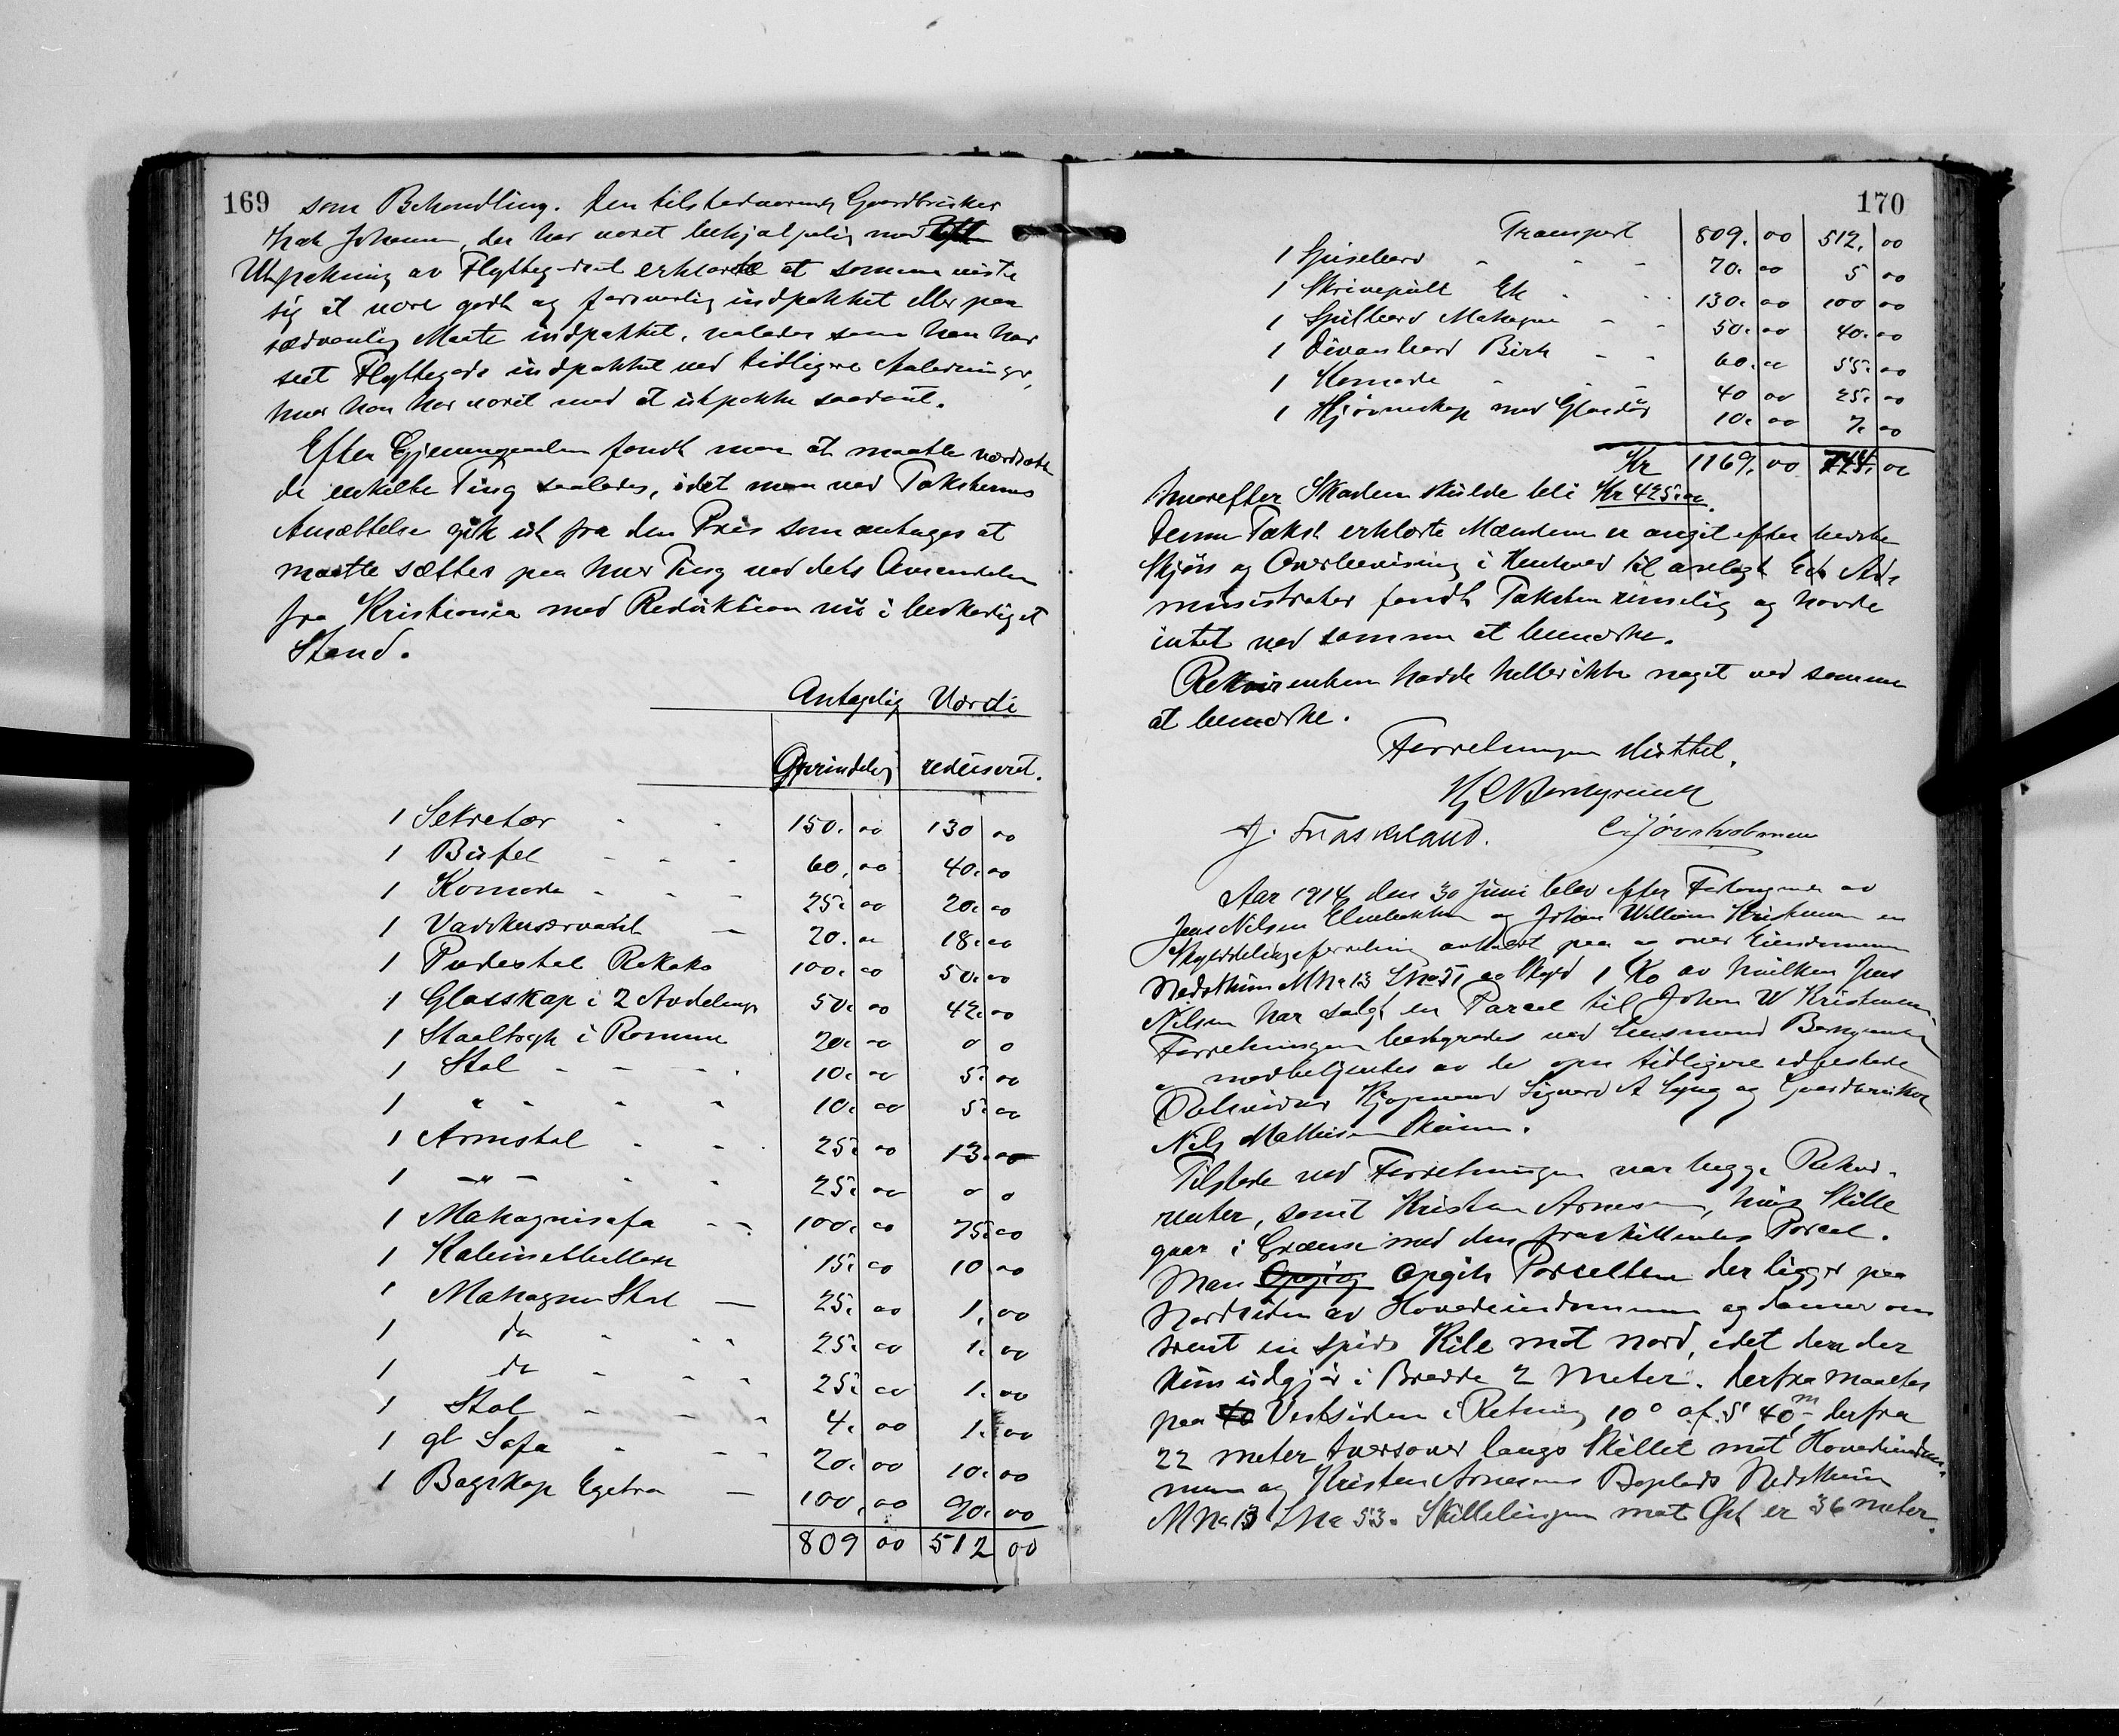 169
som Behandling. Den tilstedværende Gaardbruker
Johansen, der har været behjælpelig med
Utpakning av Flyttegodset erklærte at samme viste
sig at være godt og forsvarlig indpakket eller paa
sædvanlig Maate indpakket, saaledes som han har
seet Flyttegods indpakket ved tidligere Anledninger,
hvor han har været med at utpakke saadant.
Efter Gjennemgaaelsen fandt man at maatte værdsætte
de enkelte Ting saaledes, idet man ved Taksternes
Ansættelse gik ut fra den Pris som antages at
maatte sættes paa hver Ting ved dets Avsendelse
fra Kristiania med Reduktion nu i beskadiget
Stand.
Antagelig Værdi
Oprindelig reduseret.
1 Sekretær - - 150. 00 130 00
1 Bufet - - - 60. 00 40. 00
1 Komode - - - 25. 00 20. 00
1 Vaskeservant - 20. 00 18. 00
1 Pedestal Rokoko 100. 00 50. 00
1 Glasskap i 2 Avdelinger 50. 00 42. 00
1 Staaltrykk i Ramme 20. 00 0 0
1 Stol - - - - 10. 00 5. 00
1 " - - - 10. 00 5. 00
1 Armstol - - - 25. 00 13. 00
1 -"- - - 25. 00 0 0
1 Mahognisofa - - 100. 00 75. 00
1 Kabinet 15. 00 10 00
1 Mahogni Stol - 25. 00 1. 00
1 do - - - 25. 00 1. 00
1 do - - - 25. 00 1. 00
1 Stol - - - 4. 00 1. 00
1 gl Sofa - - - 20. 00 10. 00
1 Bogskap Egetræ - 100. 00 90. 00
809 00 512 00
170
Transport 809. 00 512. 00
1 Spisebord - - - 70. 00 5 00
1 Skrivepult Ek - - 130. 00 100 00
1 Spilbord Mahogni - - 50. 00 40. 00
1 Divanbord Birk - - 60. 00 55. 00
1 Komode - - - 40 00 25. 00
1 Hjørneskap med Glasdør 10. 00 7. 00
Kr 1169. 00 744. 00
hvorefter Skaden skulde bli Kr 425.00.
Denne Takst erklærte Mændene er avgit efter bedste
Skjøn og Overbevisning i Henhold til avlagt Ed. Ad-
ministrator fandt Taksten rimelig og havde
intet ved samme at bemerke.
Rekvirenten hadde heller ikke noget ved samme
at bemerke.
Forretningen sluttet.
Aar 1914 den 30 Juni blev efter Forlangende av
Jens Nilsen og Johan William Kristensen en
Skylddelingsforretning avholdt paa og over Eiendommen
Nedstheim MNo 13 LNo 51 av Skyld 1 Ko av hvilken Jens
Nilsen har solgt en Parcel til Johan W Kristensen.
Forretningen bestyredes ved Lensmand
og medbetjentes av de tidligere edfæstede
Retsvidner Kjøpmand Sigvard A Lyng og Gaardbruker
Nils Mathisen
Tilstede ved Forretningen var begge Rekvi-
renter, samt Kristen Arnesen, hvis Skille
gaar i Grænse med den fraskillendes Parcel.
Man Opgik Parcellen der ligger paa
Nordsiden av Hovedeiendommen og danner om-
trent en spids Kile mot nord, idet den der
kun udgjør i Bredde 2 Meter. Derfra maaltes
paa Vestsiden i Retning 10° af S 40 m derfra
22 meter tversover langs Skillet mot Hovedeiendom-
men og Kristen Arnesens Boplads Nedstheim
MNo 13 LNo 53. Skillelinjen mot Øst er 36 meter.